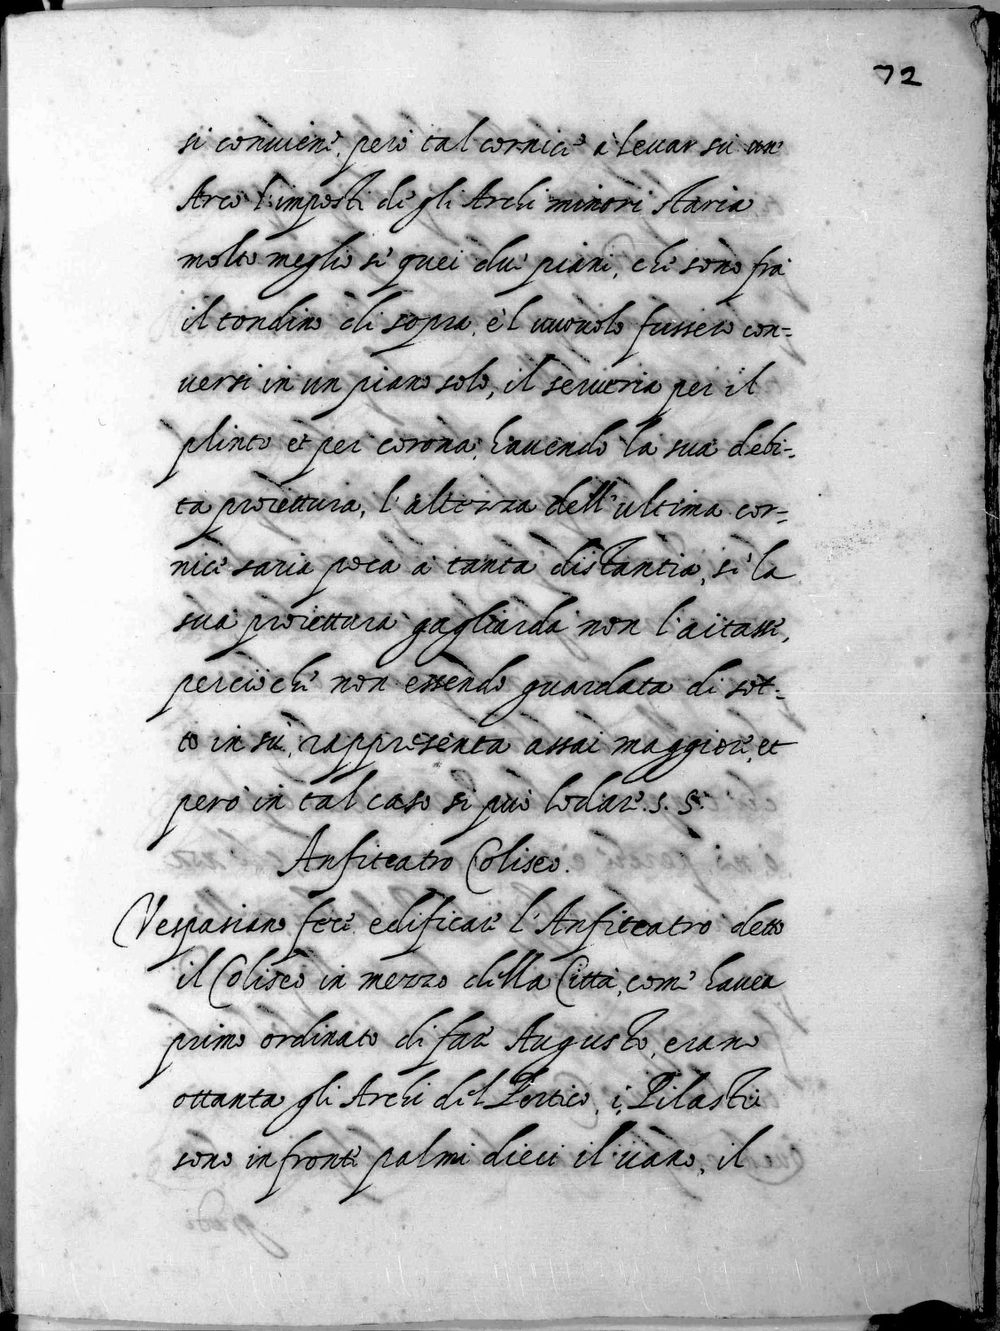 72
si conuiene, però tal cornice à leuar sù un'
Arco l'imposte de gli Archi minori staria
molto meglio se quei due piani, che sono frà
il tondino di sopra, e'l vuouolo fussero con-
uersi in un piano solo, il seruiria per il
plinto et per corona, hauendo la sua debi-
ta proiettura, l'altezza dell'ultima cor-
nice saria poca à tanta distantia, se la
sua proiettura gagliarda non l'aitasse,
percioche non essendo guardata di sot-
to in sù, rappresenta assai maggiore, et
però in tal caso si può lodare. s. s.
Anfiteatro Coliseo.
Vespasiano fece edificare l'Anfiteatro detto
il Coliseo in mezzo della Città, com' hauea
primo ordinato di far Augusto, erano
ottanta gli Archi del Portico, i Pilastri
sono in fronte palmi dieci il uano, il